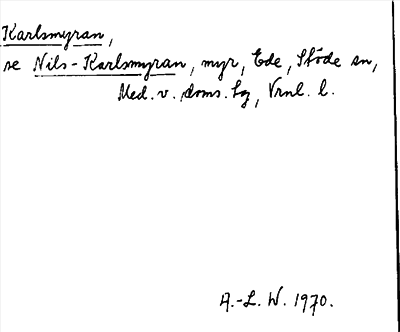 Karlsmyran,
se Nils-Karlsmyran, myr, Ede, Stöde sn,
Med. v. doms. tg, Vrnl. l.
A.-L. W. 1970.